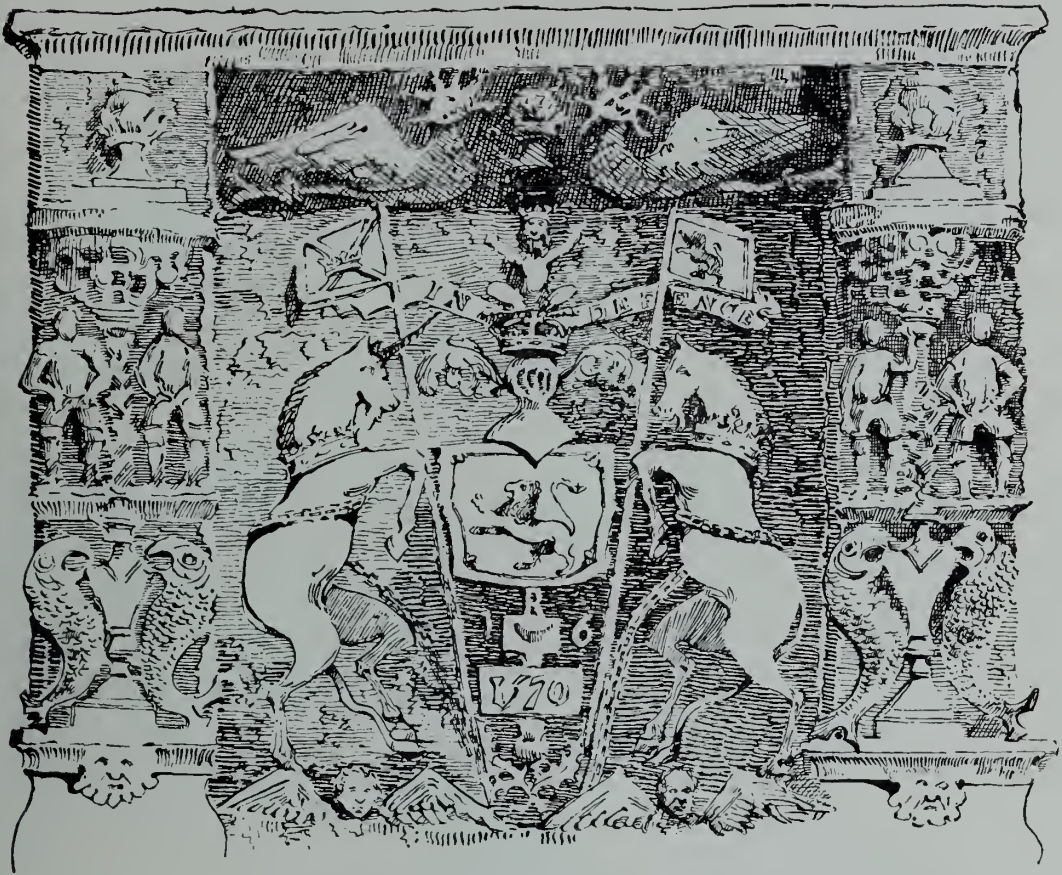 IN DEFENCE
I R 6
1570